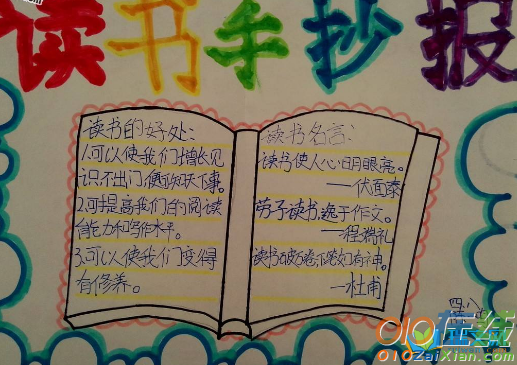 读书手抄报
读书的好处:
1.可以使我们增长见
识不出门便可知天下事。
2.可提高我们的阅读
能力和写作水平。
3.可以使我们变得
有修养。
读书名言:
读书使人心明眼亮。
——伏面泰
劳于读书,逸于作文。
——程端礼
读书破万卷下笔如有神。
——杜甫
四.八
010在线
010ZaiXian.com